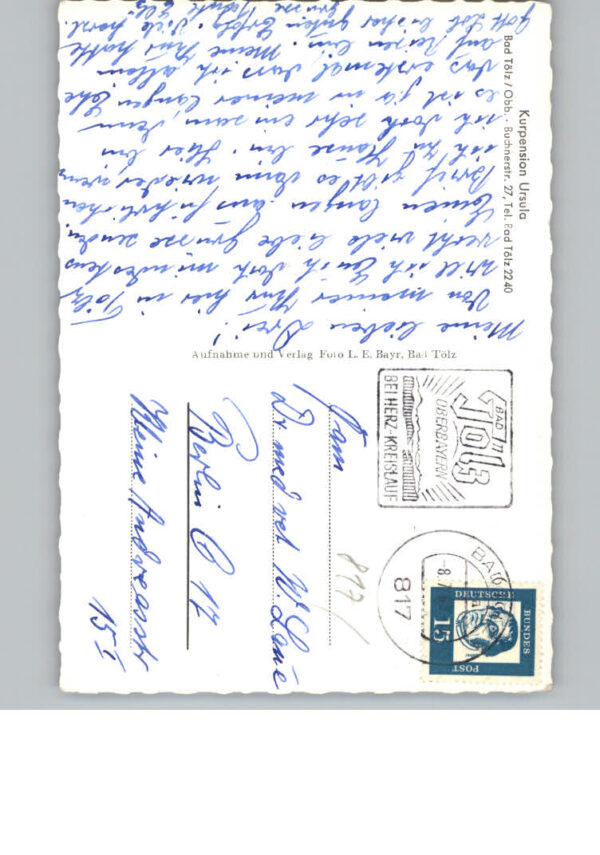 Kurpension Ursula
Bad Tölz / Obb. · Buchnerstr. 27, Tel. Bad Tölz 2240
Meine lieben Drei!
Von meiner Kur hier in Tölz
will ich Euch doch mindestens
recht viele liebe Grüsse senden.
Einen langen ausführlichen
Brief gibt es dann wieder wenn
ich zu Hause bin. Hier bin
ich doch sehr einsam, denn
es ist ja in meiner langen Ehe
das erstemal, dass ich allein
auf Reisen bin. Meine Kur hatte
Gott Lob bisher guten Erfolg. Viele herzl.
Grüsse
Aufnahme und Verlag Foto L. E. Bayr, Bad Tölz
BAD
Tölz
OBERBAYERN
BEI HERZ-KREISLAUF
817
BAD
-8.7
DEUTSCHE
BUNDES
POST
15
817
Dr med vet W.
Berlin O 17
Kleine Andreasstr
15 I